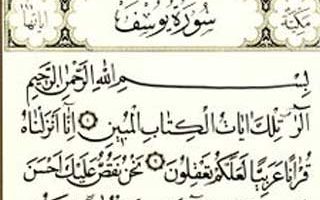 مكية
سورة يوسف
آياتها ١١١
بِسْمِ اللهِ الرَّحْمٰنِ الرَّحِيمِ
الٓرٰ تِلْكَ اٰيَاتُ الْكِتَابِ الْمُبِينِ ۝ اِنَّا اَنْزَلْنَاهُ
قُرْاٰنًا عَرَبِيًّا لَعَلَّكُمْ تَعْقِلُونَ ۝ نَحْنُ نَقُصُّ عَلَيْكَ اَحْسَنَ